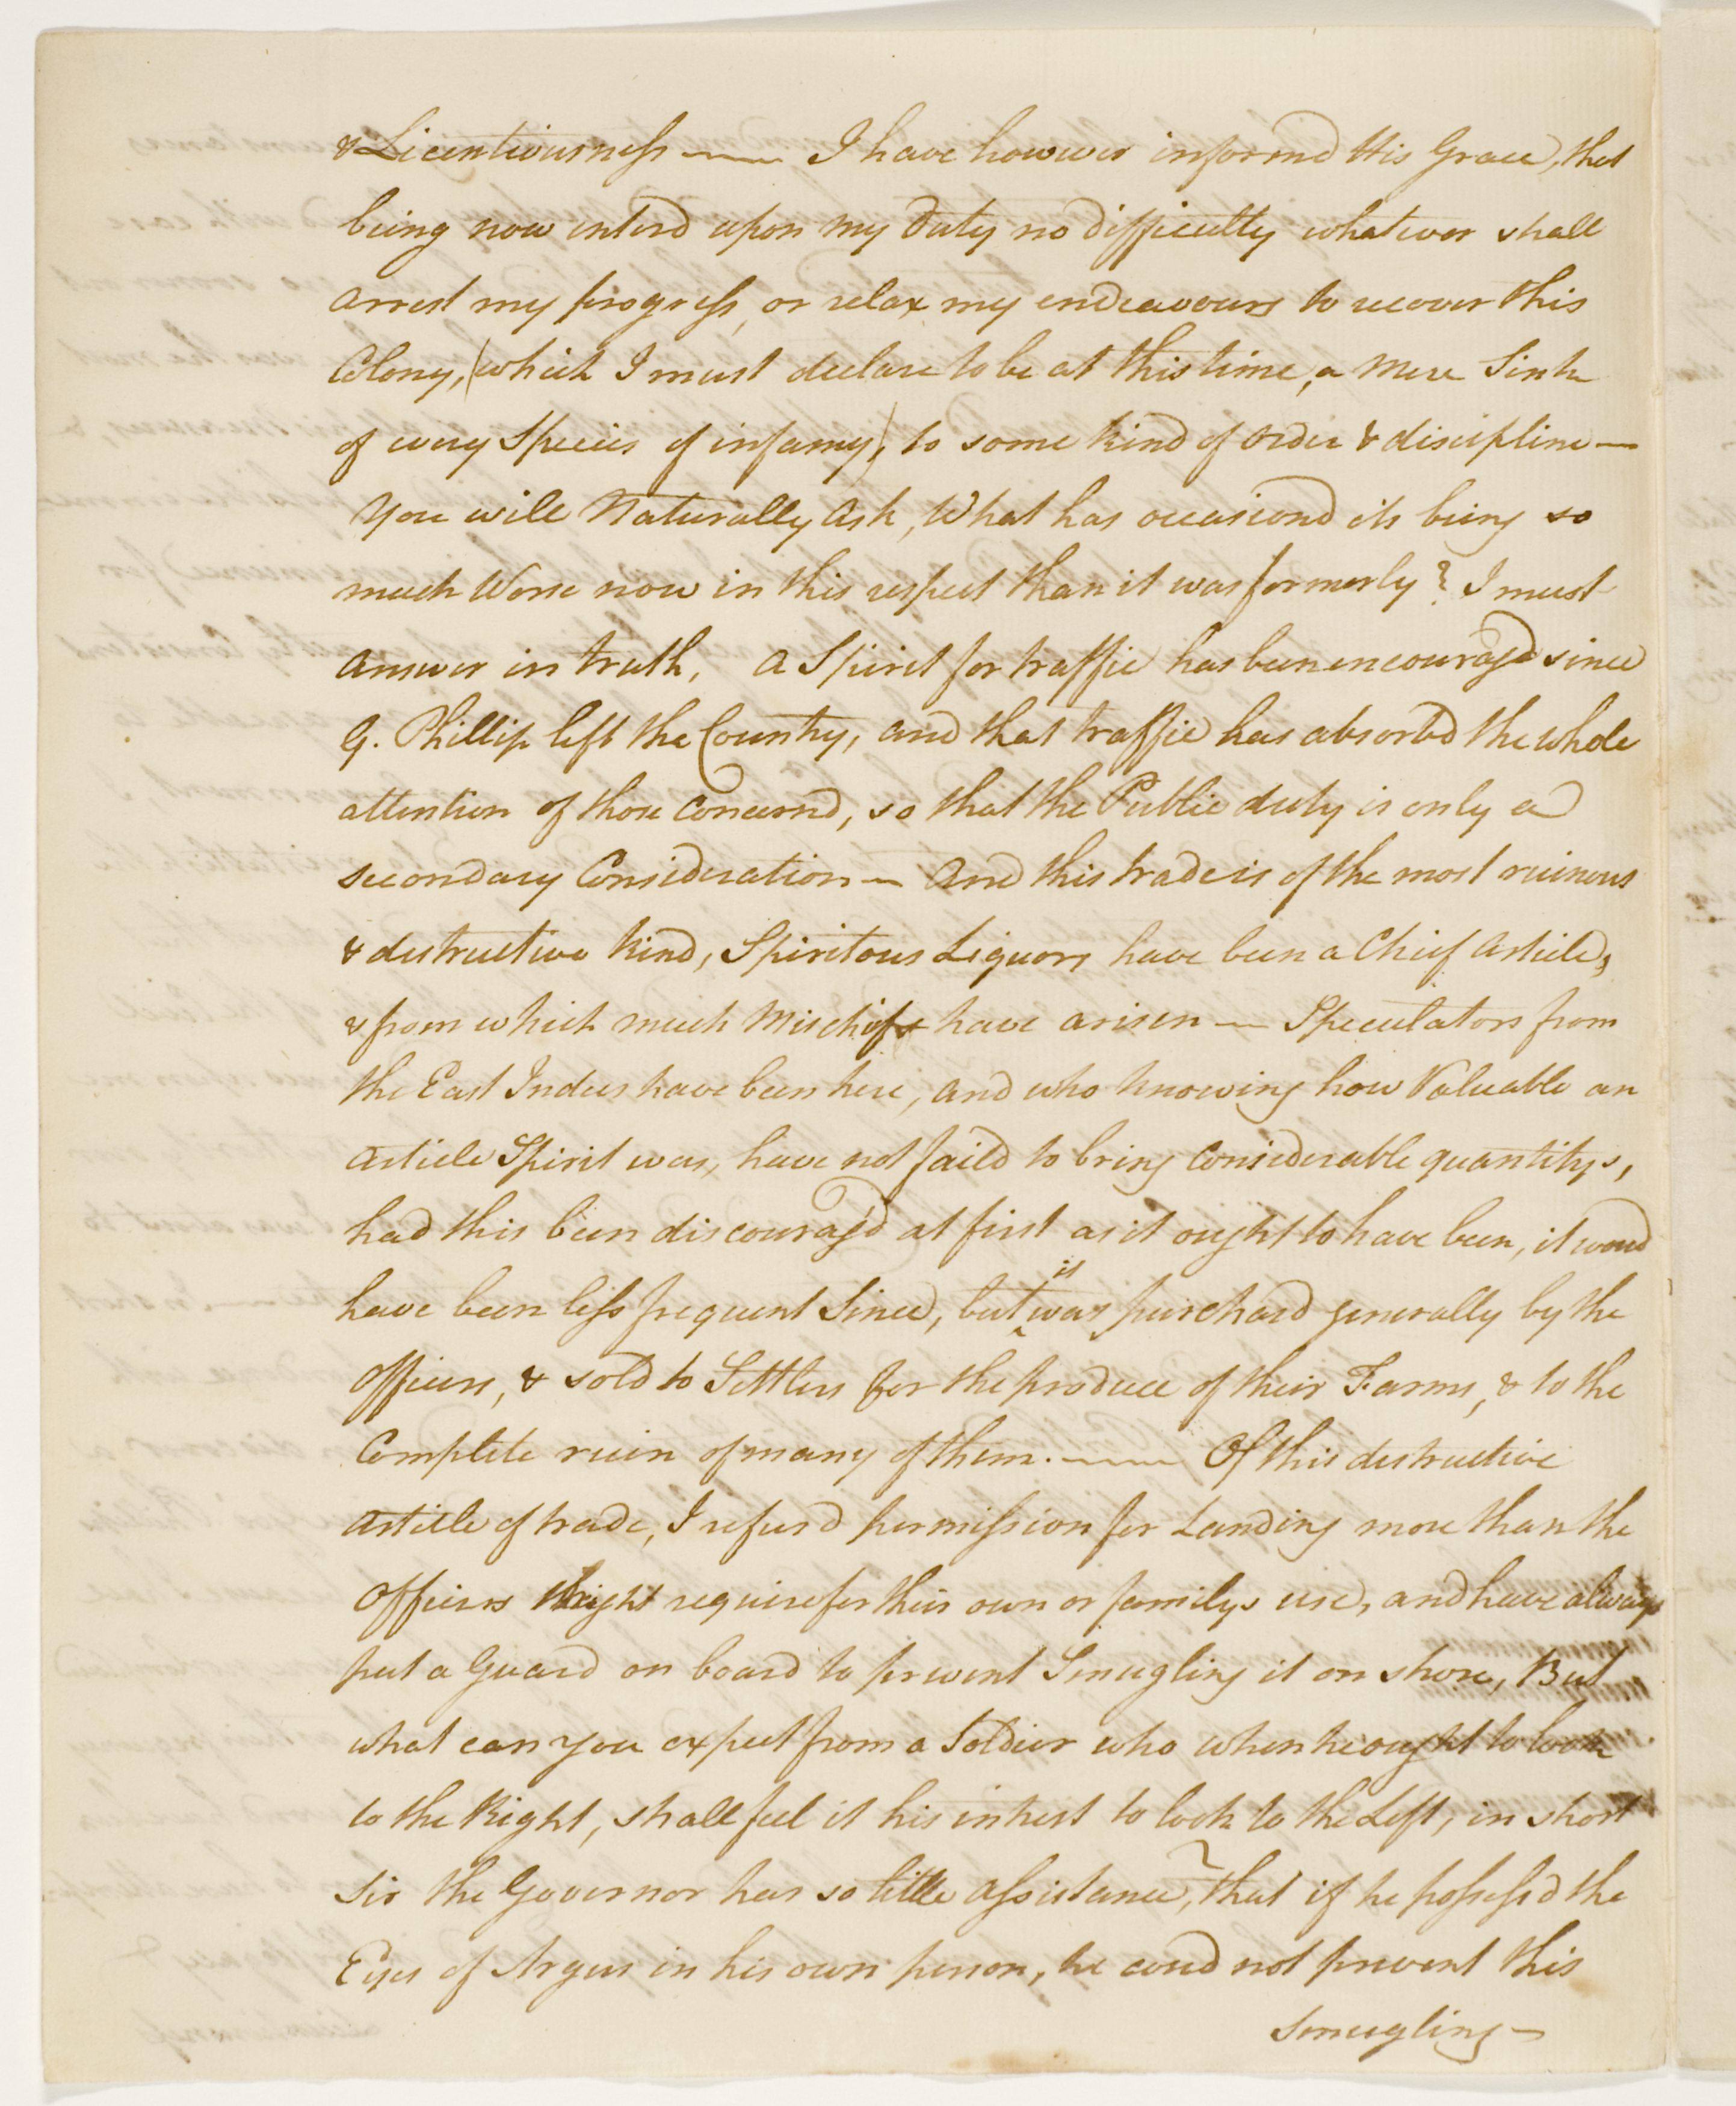 & Licentiousness —— I have however informd His Grace, that
being now enterd upon my Duty no difficulty whatever shall
arrest my progress, or relax my endeavours to recover this
Colony, (which I must declare to be at this time, a mere Sink
of every Species of infamy), to some kind of order & discipline —
You will Naturally Ask, What has occasiond its being so
much Worse now in this respect than it was formerly? I must
answer in truth, a Spirit for traffic has been encouragd since
G. Phillip left the Country, and that traffic has absorbd the whole
attention of those concernd, so that the Public duty is only a
secondary Consideration — And this trade is of the most ruinous
& destructive kind, Spiritous Liquors have been a Chief article,
& from which much Mischief have arisen — Speculators from
the East Indies have been here, and who knowing how Valuable an
article Spirit was, have not faild to bring considerable quantitys,
had this been discouragd at first as it ought to have been, it woud
have been less frequent Since, but it was purchasd generally by the
officers, & sold to Settlers for the produce of their Farms, & to the
Complete ruin of many of them. —— Of this destructive
article of trade, I refusd permission for Landing more than the
officers might require for their own or familys use, and have always
put a Guard on board to prevent Smugling it on shore, But
what can you expect from a Soldier who when he ought to look
to the Right, shall feel it his intrest to look to the Left, in short
Sir the Governor has so little assistance, that if he possessd the
Eyes of Argus in his own person, he coud not prevent this
Smugling —